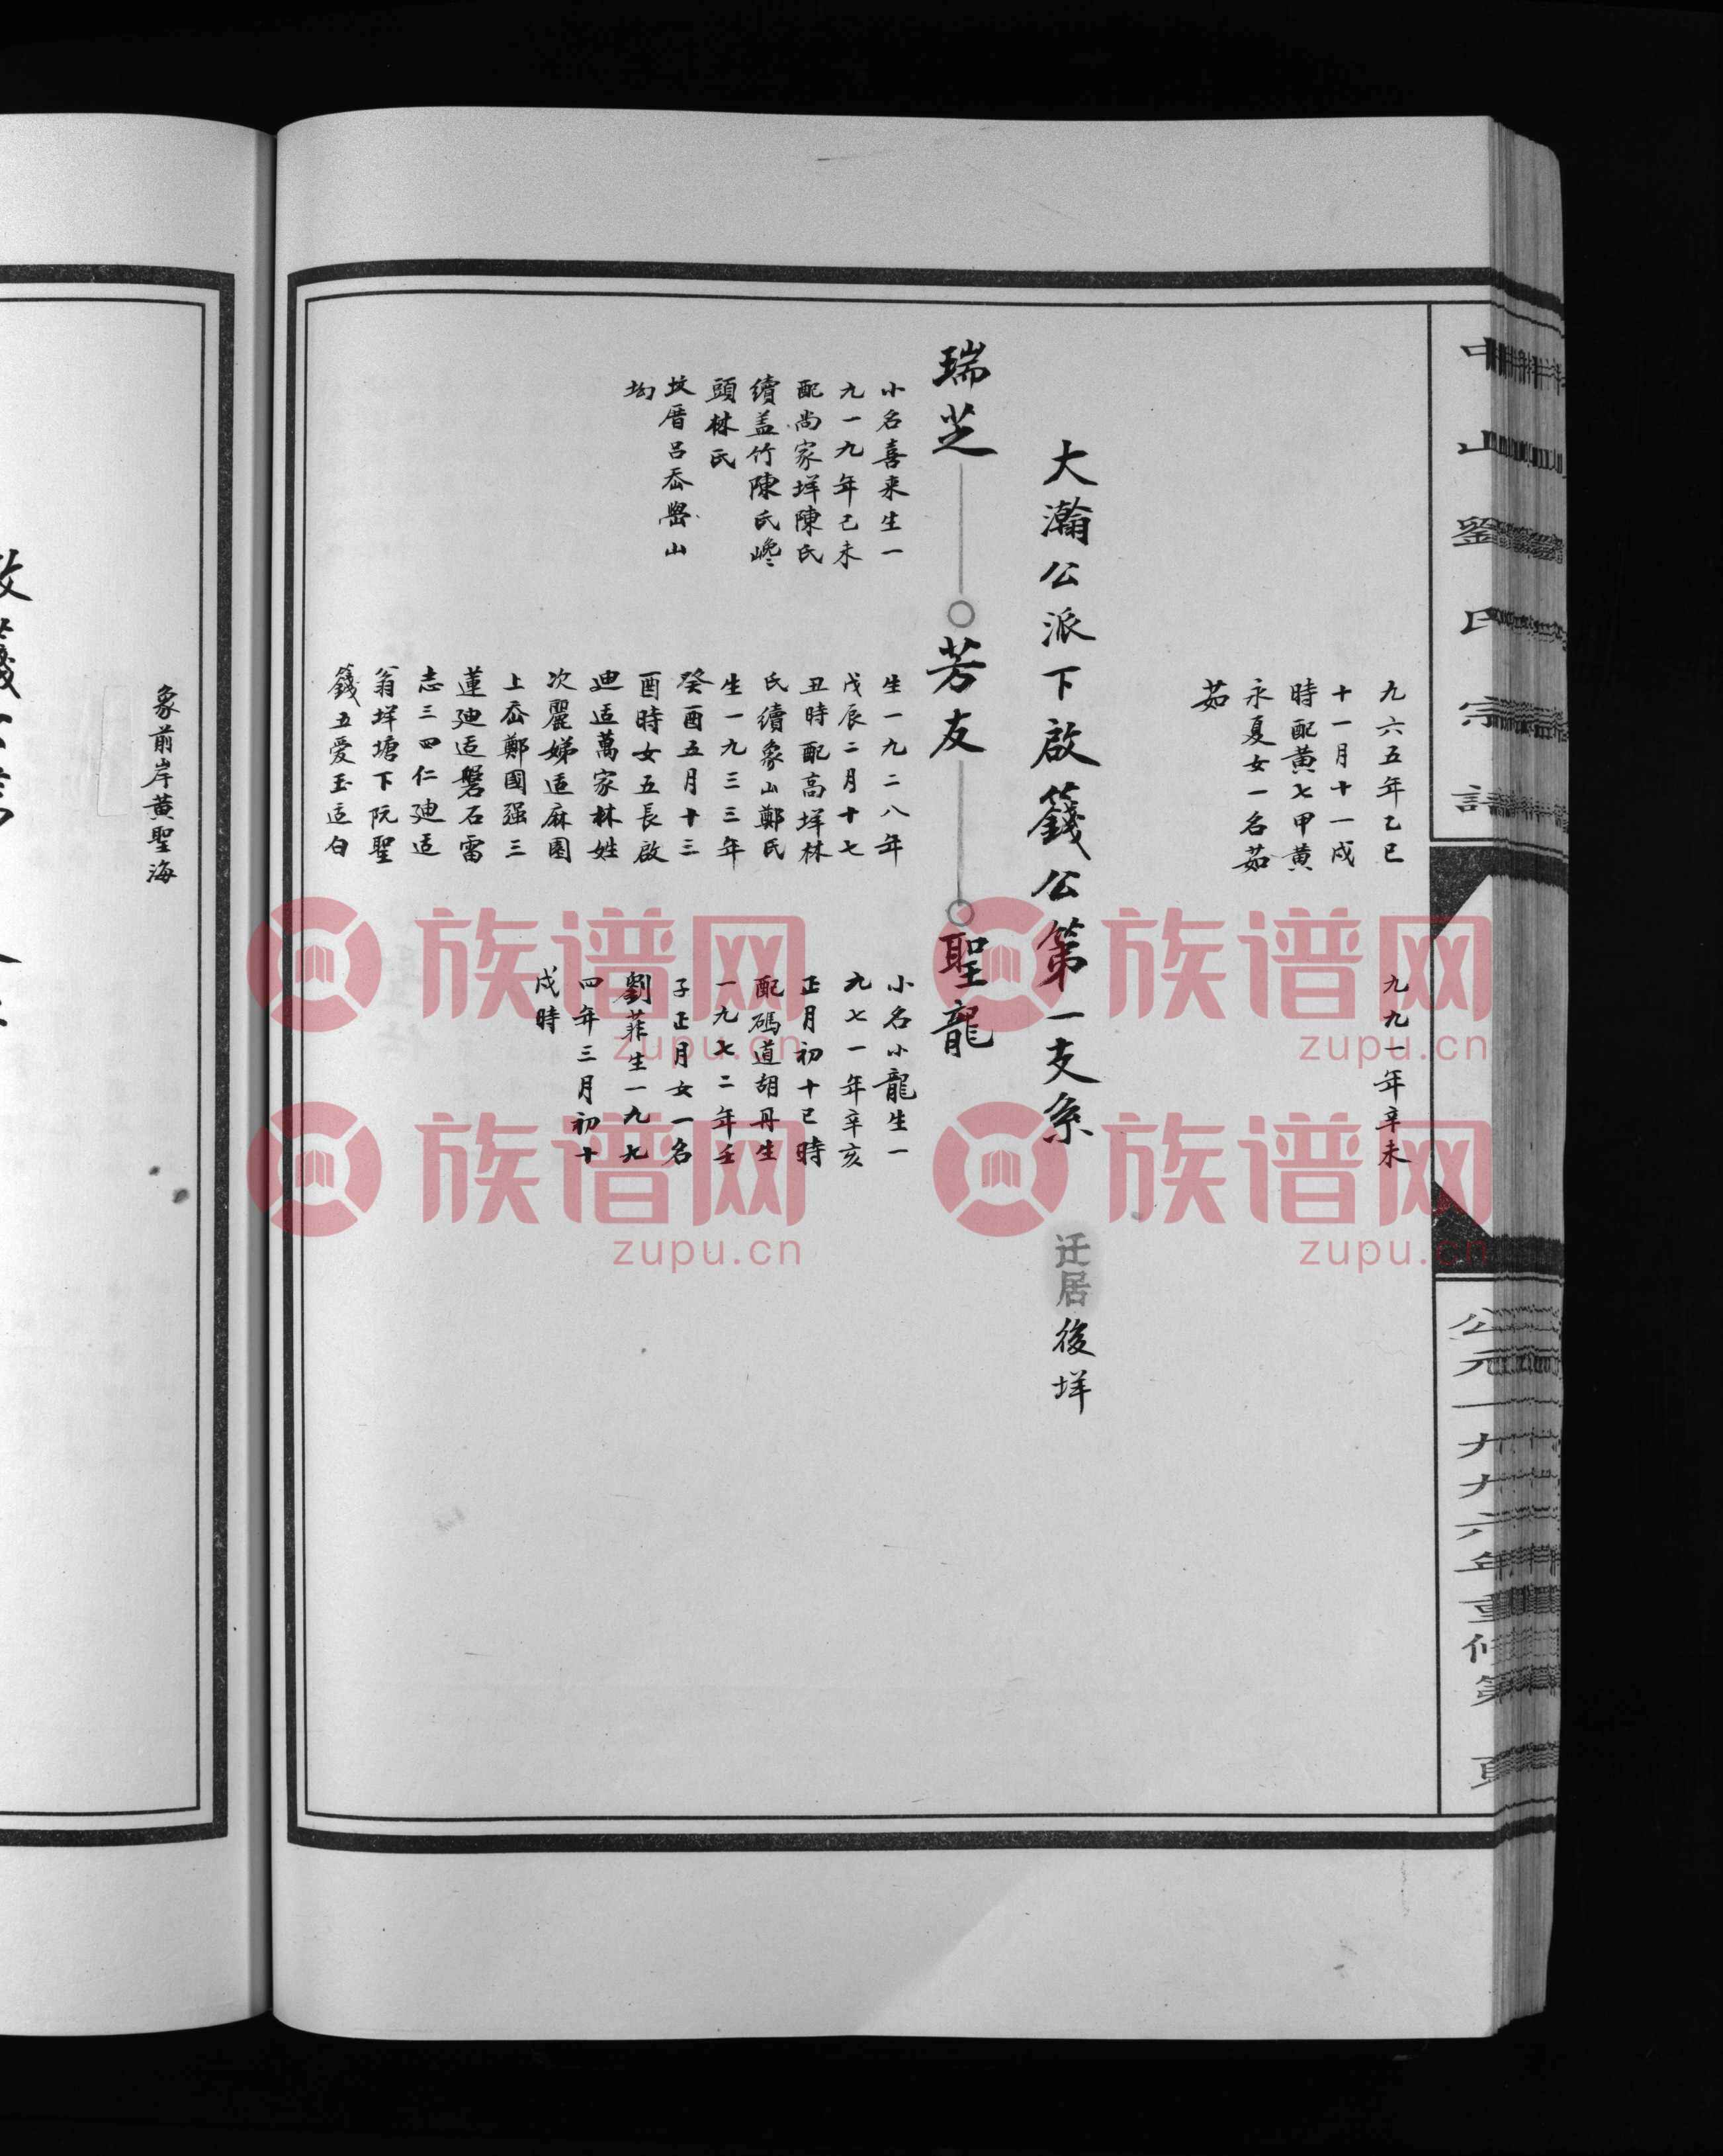 中山劉氏宗譜
公元一九九六年重修第 頁
九六五年乙巳
十一月十一戌
時配黄七甲黄
永夏女一名茹
茹
九九一年辛未
大瀚公派下啟籛公第一支系 迁居後垟
瑞芝
小名喜来生一
九一九年己未
配尚家垟陳氏
續盖竹陳氏巉
頭林氏
坟厝呂岙嶨山
坳
芳友
生一九二八年
戊辰二月十七
丑時配高垟林
氏續象山鄭氏
生一九三三年
癸酉五月十三
酉時女五長啟
迪适萬家林姓
次麗娣适麻園
上岙鄭國强三
蓮廸适磐石雷
志三四仁廸适
翁垟塘下阮聖
錢五愛玉适白
聖龍
小名小龍生一
九七一年辛亥
正月初十巳時
配碼道胡丹生
一九七二年壬
子正月女一名
劉菲生一九九
四年三月初十
戌時
象前岸黄聖海
族谱网
zupu.cn
族谱网
zupu.cn
族谱网
zupu.cn
族谱网
zupu.cn